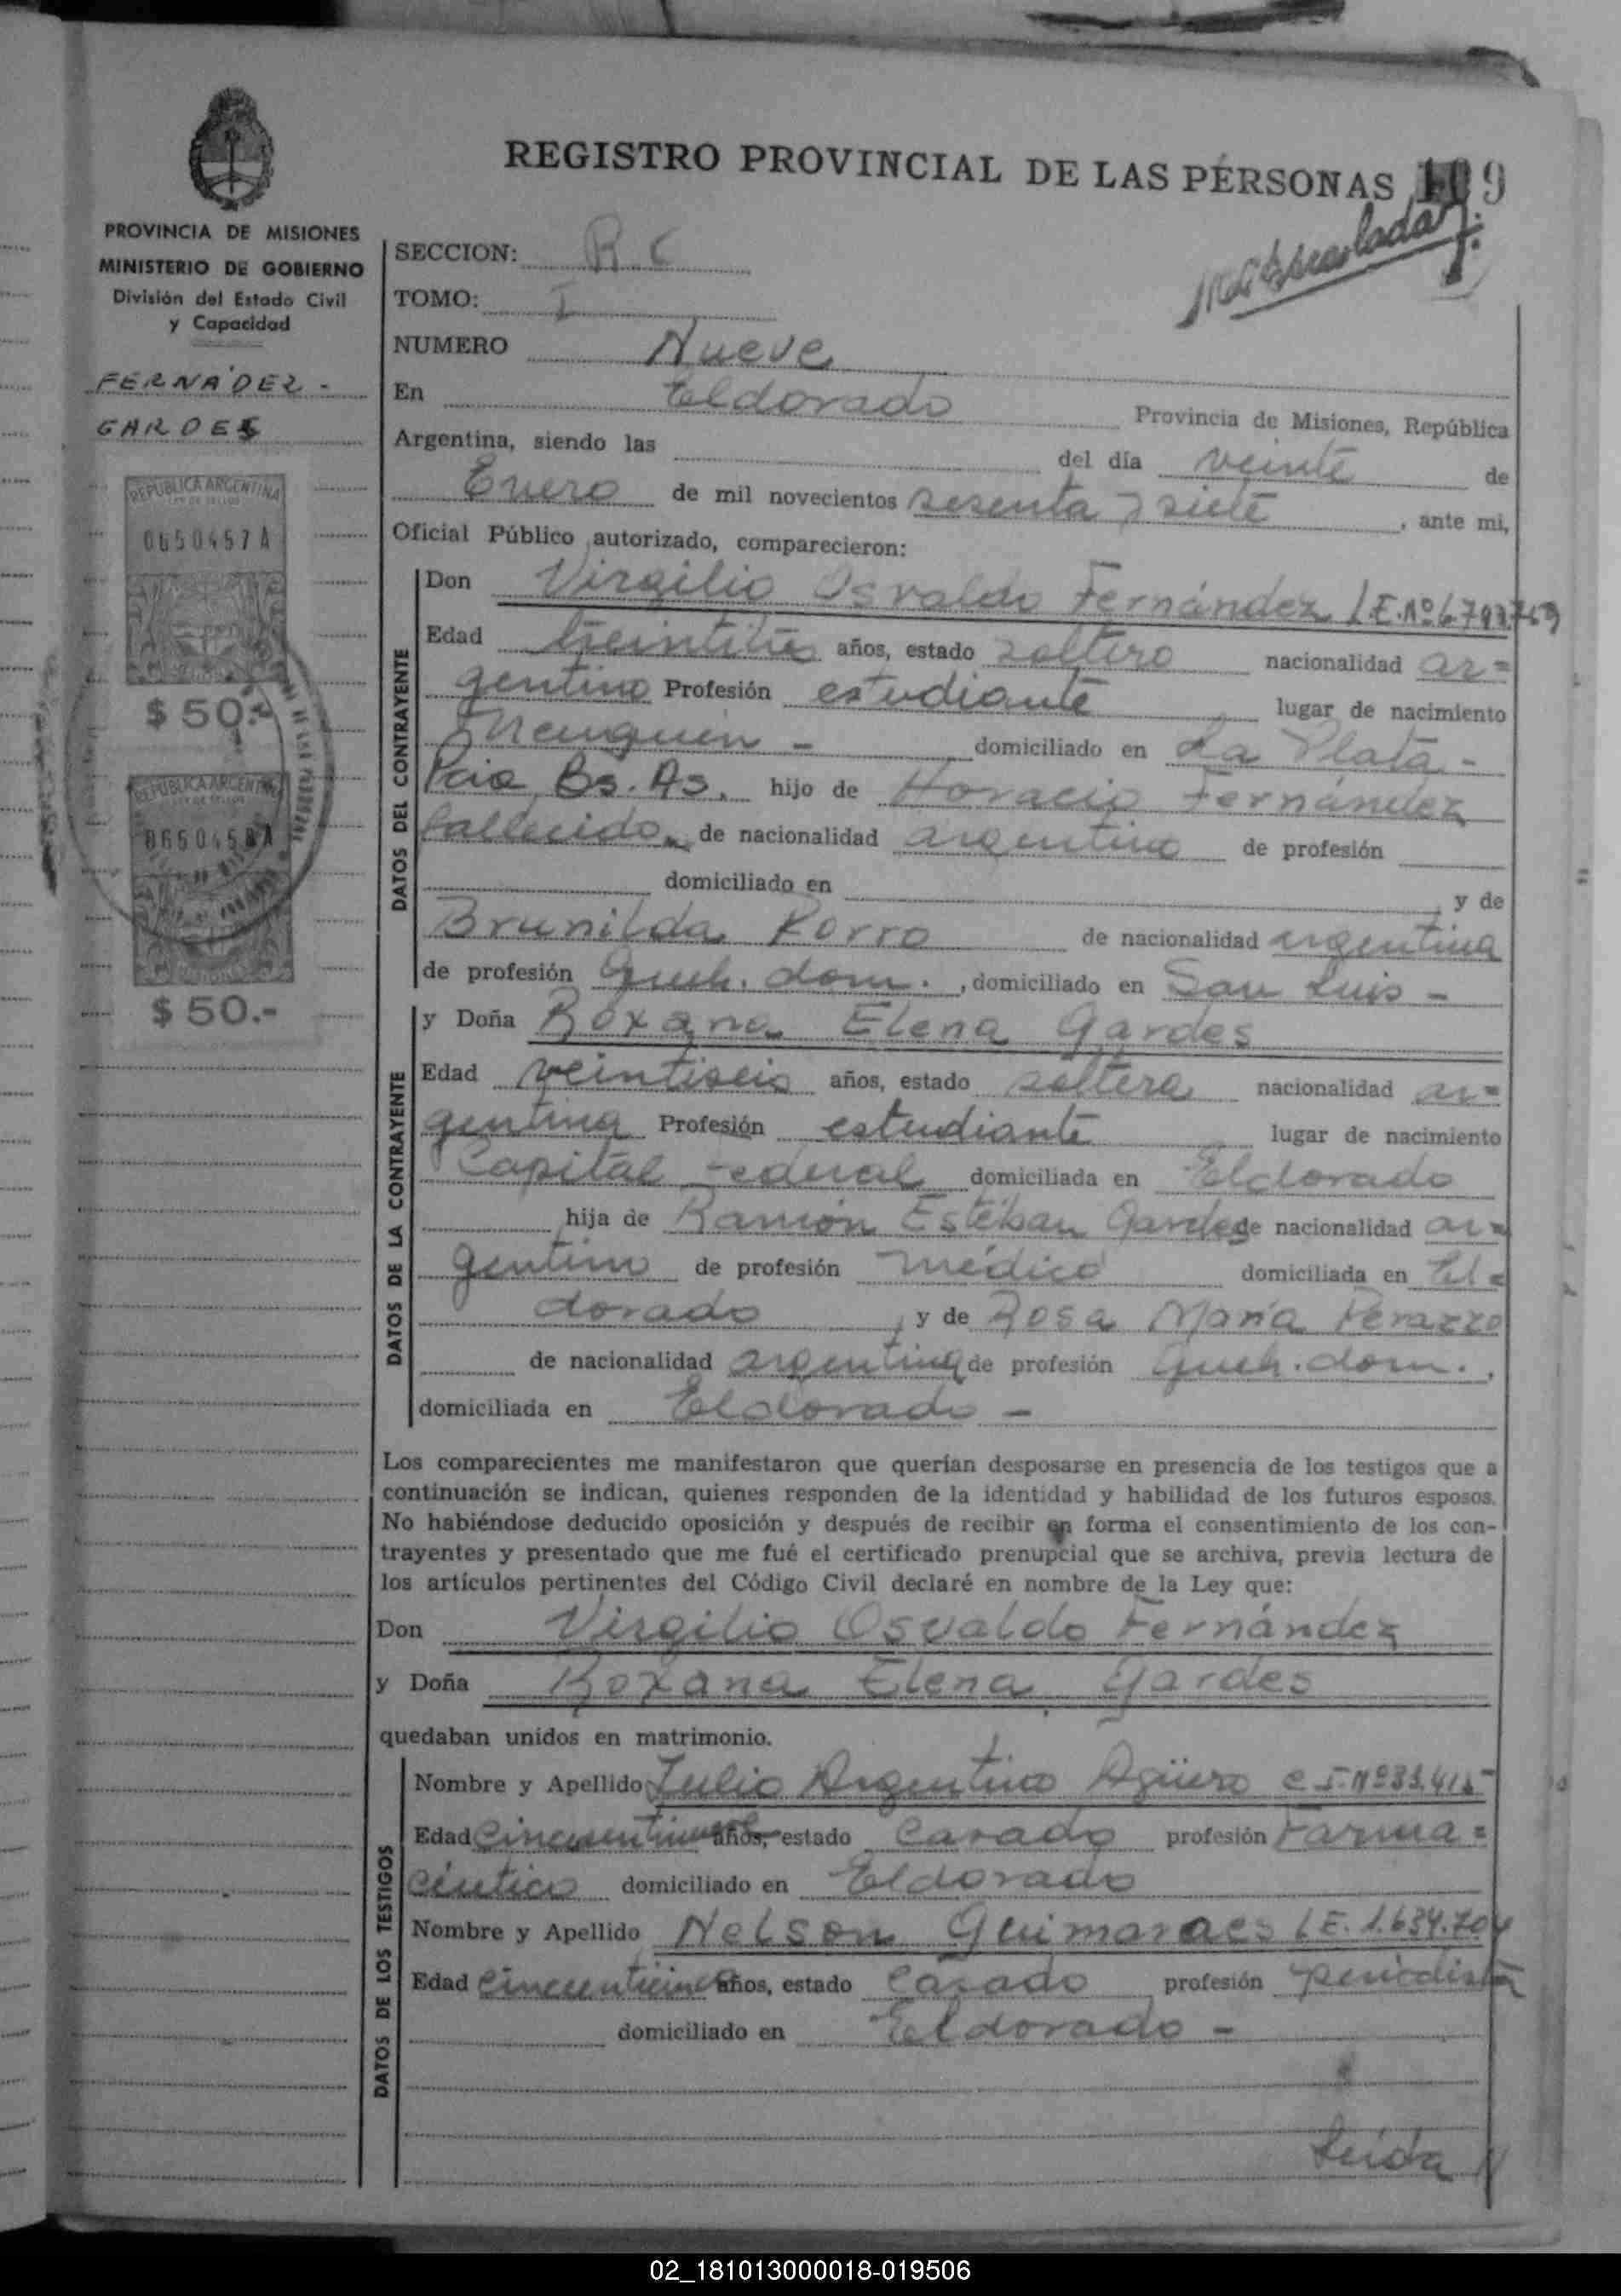 REGISTRO PROVINCIAL DE LAS PERSONAS 9
PROVINCIA DE MISIONES
MINISTERIO DE GOBIERNO
División del Estado Civil
y Capacidad
FERNA'DEZ -
GARDES
REPUBLICA ARGENTINA
LEY DE SELLOS
0650457 A
$ 50.-
REPUBLICA ARGENTINA
LEY DE SELLOS
0650458 A
$ 50.-
SECCION: R C
TOMO: I
NUMERO Nueve
En Eldorado Provincia de Misiones, República
Argentina, siendo las del día veinte de
Enero de mil novecientos sesenta y siete, ante mi,
Oficial Público autorizado, comparecieron:
DATOS DEL CONTRAYENTE
Don Virgilio Osvaldo Fernández L.E.Nº 6.793.769
Edad treintitres años, estado soltero nacionalidad ar=
gentino Profesión estudiante lugar de nacimiento
Neuquén - domiciliado en La Plata -
Pcia Bs. As. hijo de Horacio Fernández
fallecido, de nacionalidad argentino de profesión
domiciliado en y de
Brunilda Porro de nacionalidad argentina
de profesión Queh. dom. , domiciliado en San Luis -
DATOS DE LA CONTRAYENTE
y Doña Roxana Elena Gardes
Edad veintiseis años, estado soltera nacionalidad ar=
gentina Profesión estudiante lugar de nacimiento
Capital Federal domiciliada en Eldorado
hija de Ramón Esteban Gardes de nacionalidad ar=
gentino de profesión médico domiciliada en El=
dorado, y de Rosa María Perazzo
de nacionalidad argentina de profesión Queh. dom. ,
domiciliada en Eldorado -
Los comparecientes me manifestaron que querían desposarse en presencia de los testigos que a
continuación se indican, quienes responden de la identidad y habilidad de los futuros esposos.
No habiéndose deducido oposición y después de recibir en forma el consentimiento de los con-
trayentes y presentado que me fué el certificado prenupcial que se archiva, previa lectura de
los artículos pertinentes del Código Civil declaré en nombre de la Ley que:
Don Virgilio Osvaldo Fernández
y Doña Roxana Elena Gardes
quedaban unidos en matrimonio.
DATOS DE LOS TESTIGOS
Nombre y Apellido Julio Argentino Agüero C.I.Nº 33.415
Edad años, estado casado profesión Farma=
céutico domiciliado en Eldorado
Nombre y Apellido Nelson Guimaraes L.E. 1.634.704
Edad cincuenticinco años, estado casado profesión periodista
domiciliado en Eldorado -
Leida
02_181013000018-019506